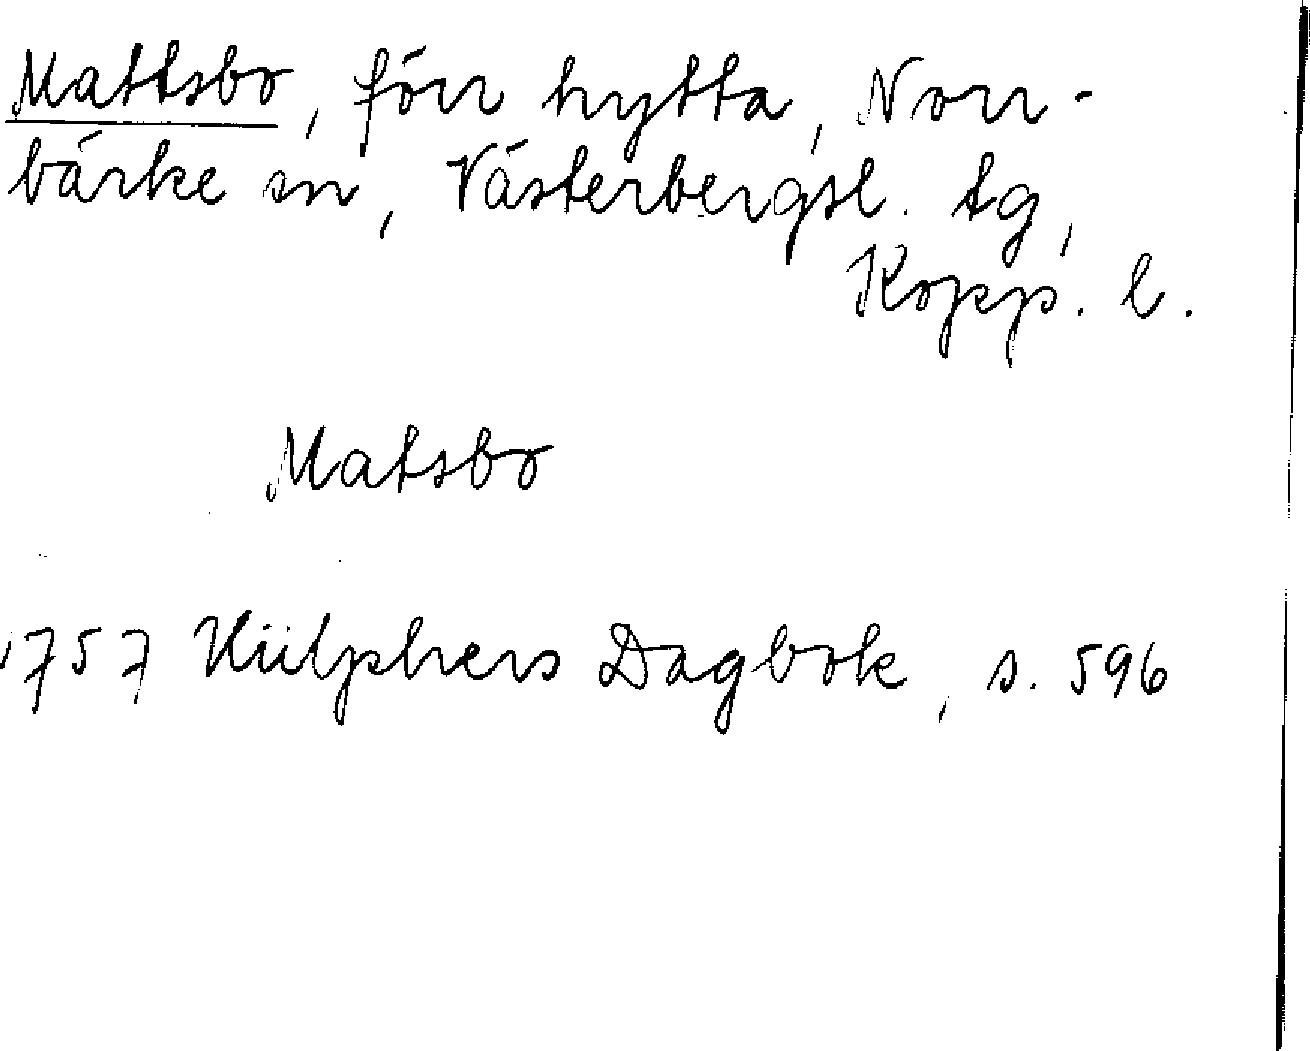 Mattsbo, förr hytta, Norr-
bärke sn, Västerbergsl. tg,
Kopp. l.
Matsbo
1757 Hülphers Dagbok, s. 596